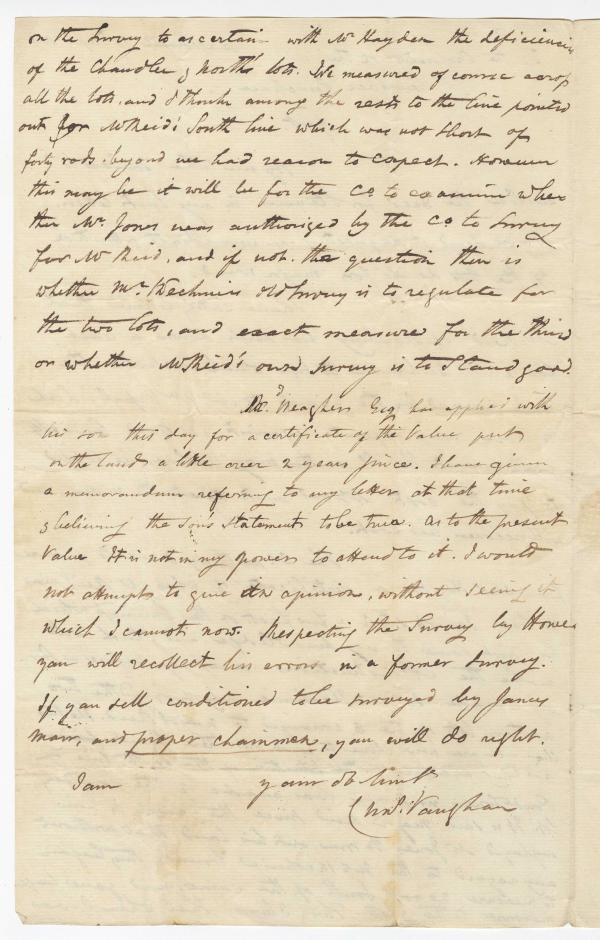 on the Survey to ascertain with Mr Hayden the deficiencies
of the Chandler & North's lots. We measured of course across
all the lots, and I think among the rests to the line pointed
out for Mr Reid's South line which was not short of
forty rods beyond we had reason to expect. However
this may be it will be for the Co. to examine whe
ther Mr. Jones was authorized by the Co to Survey
for Mr Reid, and if not, the question then is
whether Mr. old Survey is to regulate for
the two lots, and exact measure for the third
or whether Mr Reid's own Survey is to Stand good.
Meaghers Esq has applied with
his son this day for a certificate of the Value put
on the land a little over 2 years since. I have given
a memorandum referring to my letter at that time
& believing the Son's Statement to be true. as to the present
Value It is not in my power to attend to it. I would
not attempt to give an opinion, without seeing it
which I cannot now. Respecting the Survey by Howe
you will recollect his errors in a former survey.
If you sell conditioned to be surveyed by James
Marr, and proper chainmen, you will do right.
I am your ob Servt
Chas. Vaughan